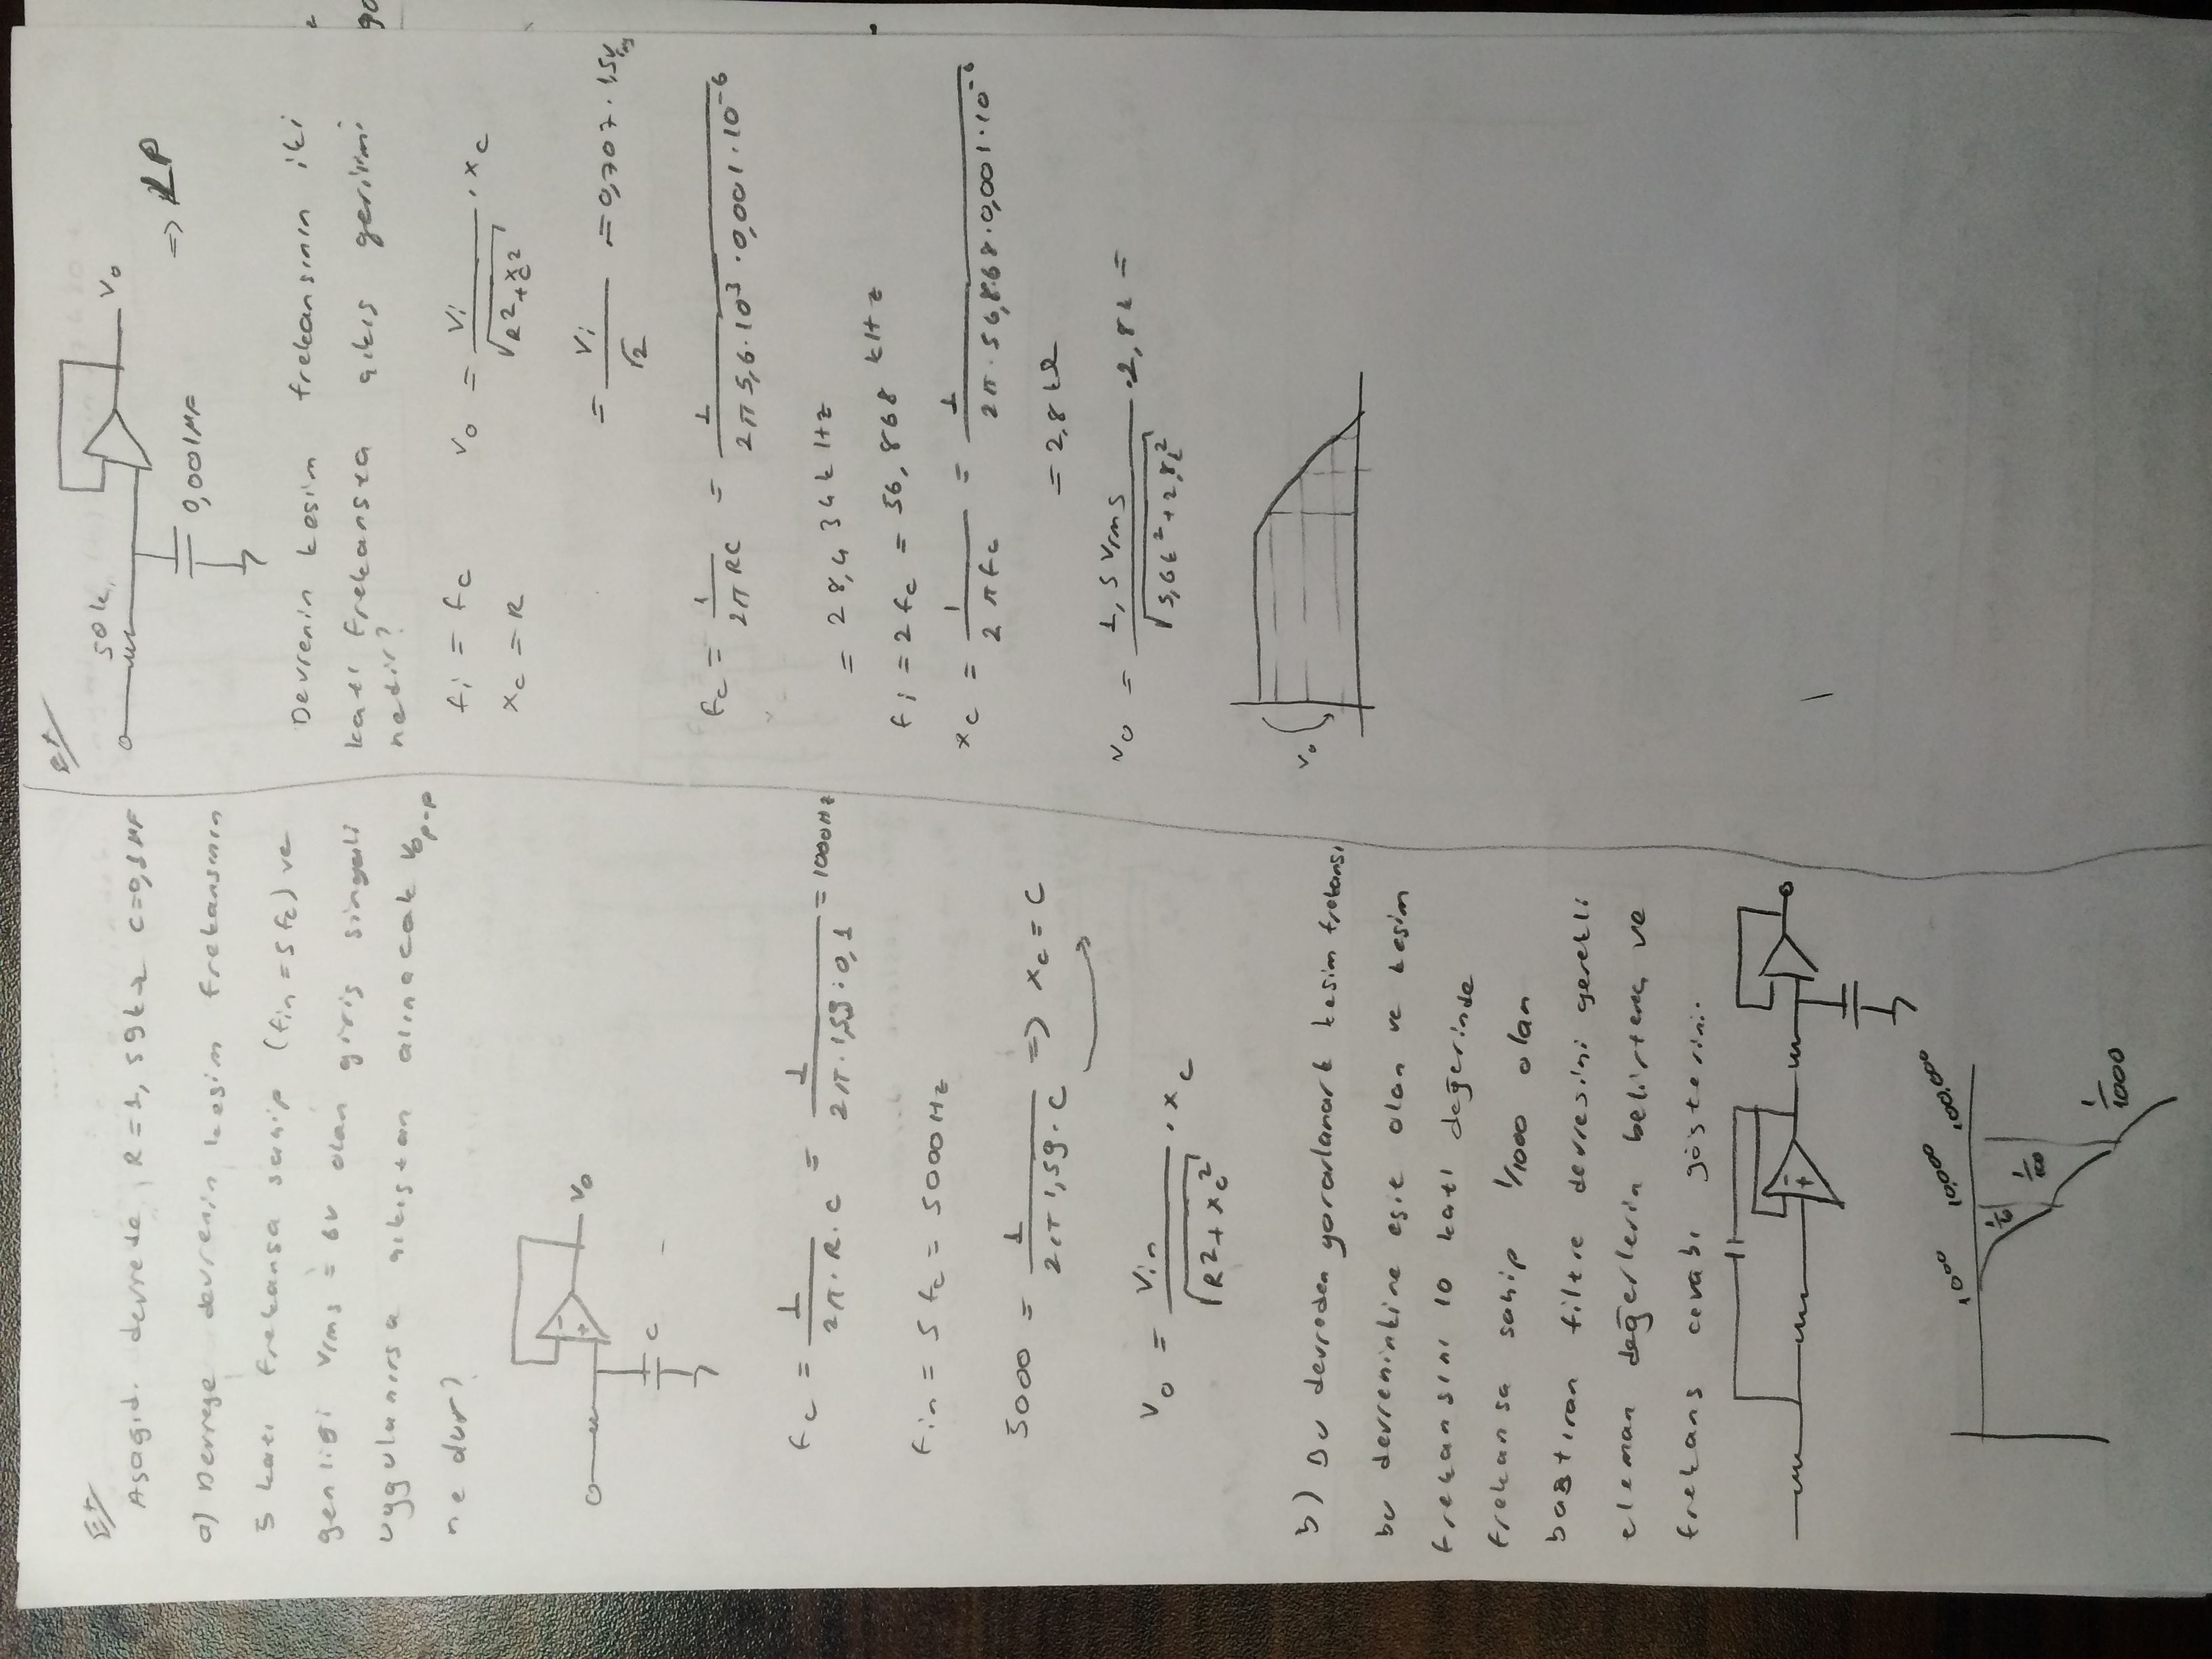 Ex/
Aşagıd. devrede, R = 1,59kΩ C=0,1MF
a) Devreye devrenin kesim frekansının
5 katı frekansa sahip (fin = 5fc) ve
genliği Vrms = 6V olan giriş sinyali
uygulanırsa çıkıştan alınacak Vop-p
ne dur?
Vo
C
fc = 1/(2π.R.C) = 1/(2π.1,59.0,1) = 1000Hz
fin = 5fc = 5000Hz
5000 = 1/(2π1,59.C) => xc = C
Vo = Vin/√(R²+xc²) . xc
b) Bu devreden yararlanark kesim frekansı
bu devreninkine eşit olan ve kesim
frekansını 10 katı değerinde
frekansa sahip 1/1000 olan
bastıran filtre devresini gerekli
eleman değerlerin belirterek ve
frekans cevabı gösterini.
1000 10.000 100.000
1/100
1/1000
Ex/
50k
Vo
0,001MF
=> LP
Devrenin kesim frekansının iki
katı frekansta çıkış gerilimi
nedir?
fi = fc Vo = Vi/√(R²+xc²) . xc
xc = R
= Vi/√2 = 0,707 . 1,5Vrms
fc = 1/(2πRC) = 1/(2π5,6.10³.0,001.10⁻⁶
= 28,434kHz
fi = 2fc = 56,868 kHz
xc = 1/(2πfc) = 1/(2π.56,868.0,001.10⁻⁶
= 2,8kΩ
Vo = 1,5Vrms/√(5,6k²+2,8k²) .2,8k =
Vo